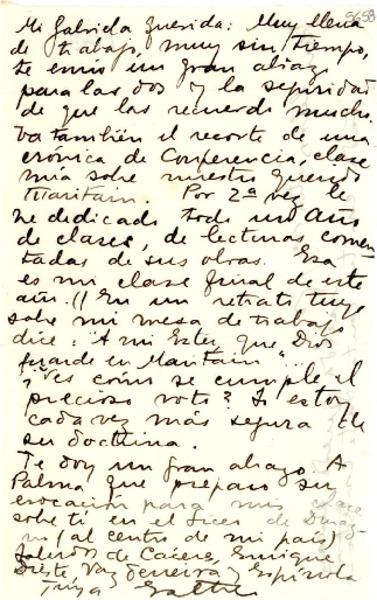 5658
Mi Gabriela querida: Muy llena
de trabajo, muy sin tiempo,
te envio un gran abrazo
para las dos y la seguridad
de que las recuerdo mucho.
Va también el recorte de una
crónica de Conferencia, clase
mía sobre nuestro querido
Maritain. Por 2ª vez le
he dedicado todo un Año
de clases, de lecturas comen-
tadas de sus obras. Esa
es mi clase final de este
año. (( En un retrato tuyo
sobre mi mesa de trabajo
dice: "A mi Ester, que Dios
guarde en Maritain"...
¿Ves cómo se cumple el
precioso voto? Yo estoy
cada vez más segura de
su doctrina.
Te doy un gran abrazo. A
Palma que preparo su
evocación para mis clases
sobre ti en el Liceo de Duraz-
no (al centro de mi país)
Saludos de Cáceres, Enrique
Dieste, Vaz Ferreira y Espínola
Tuya Esther